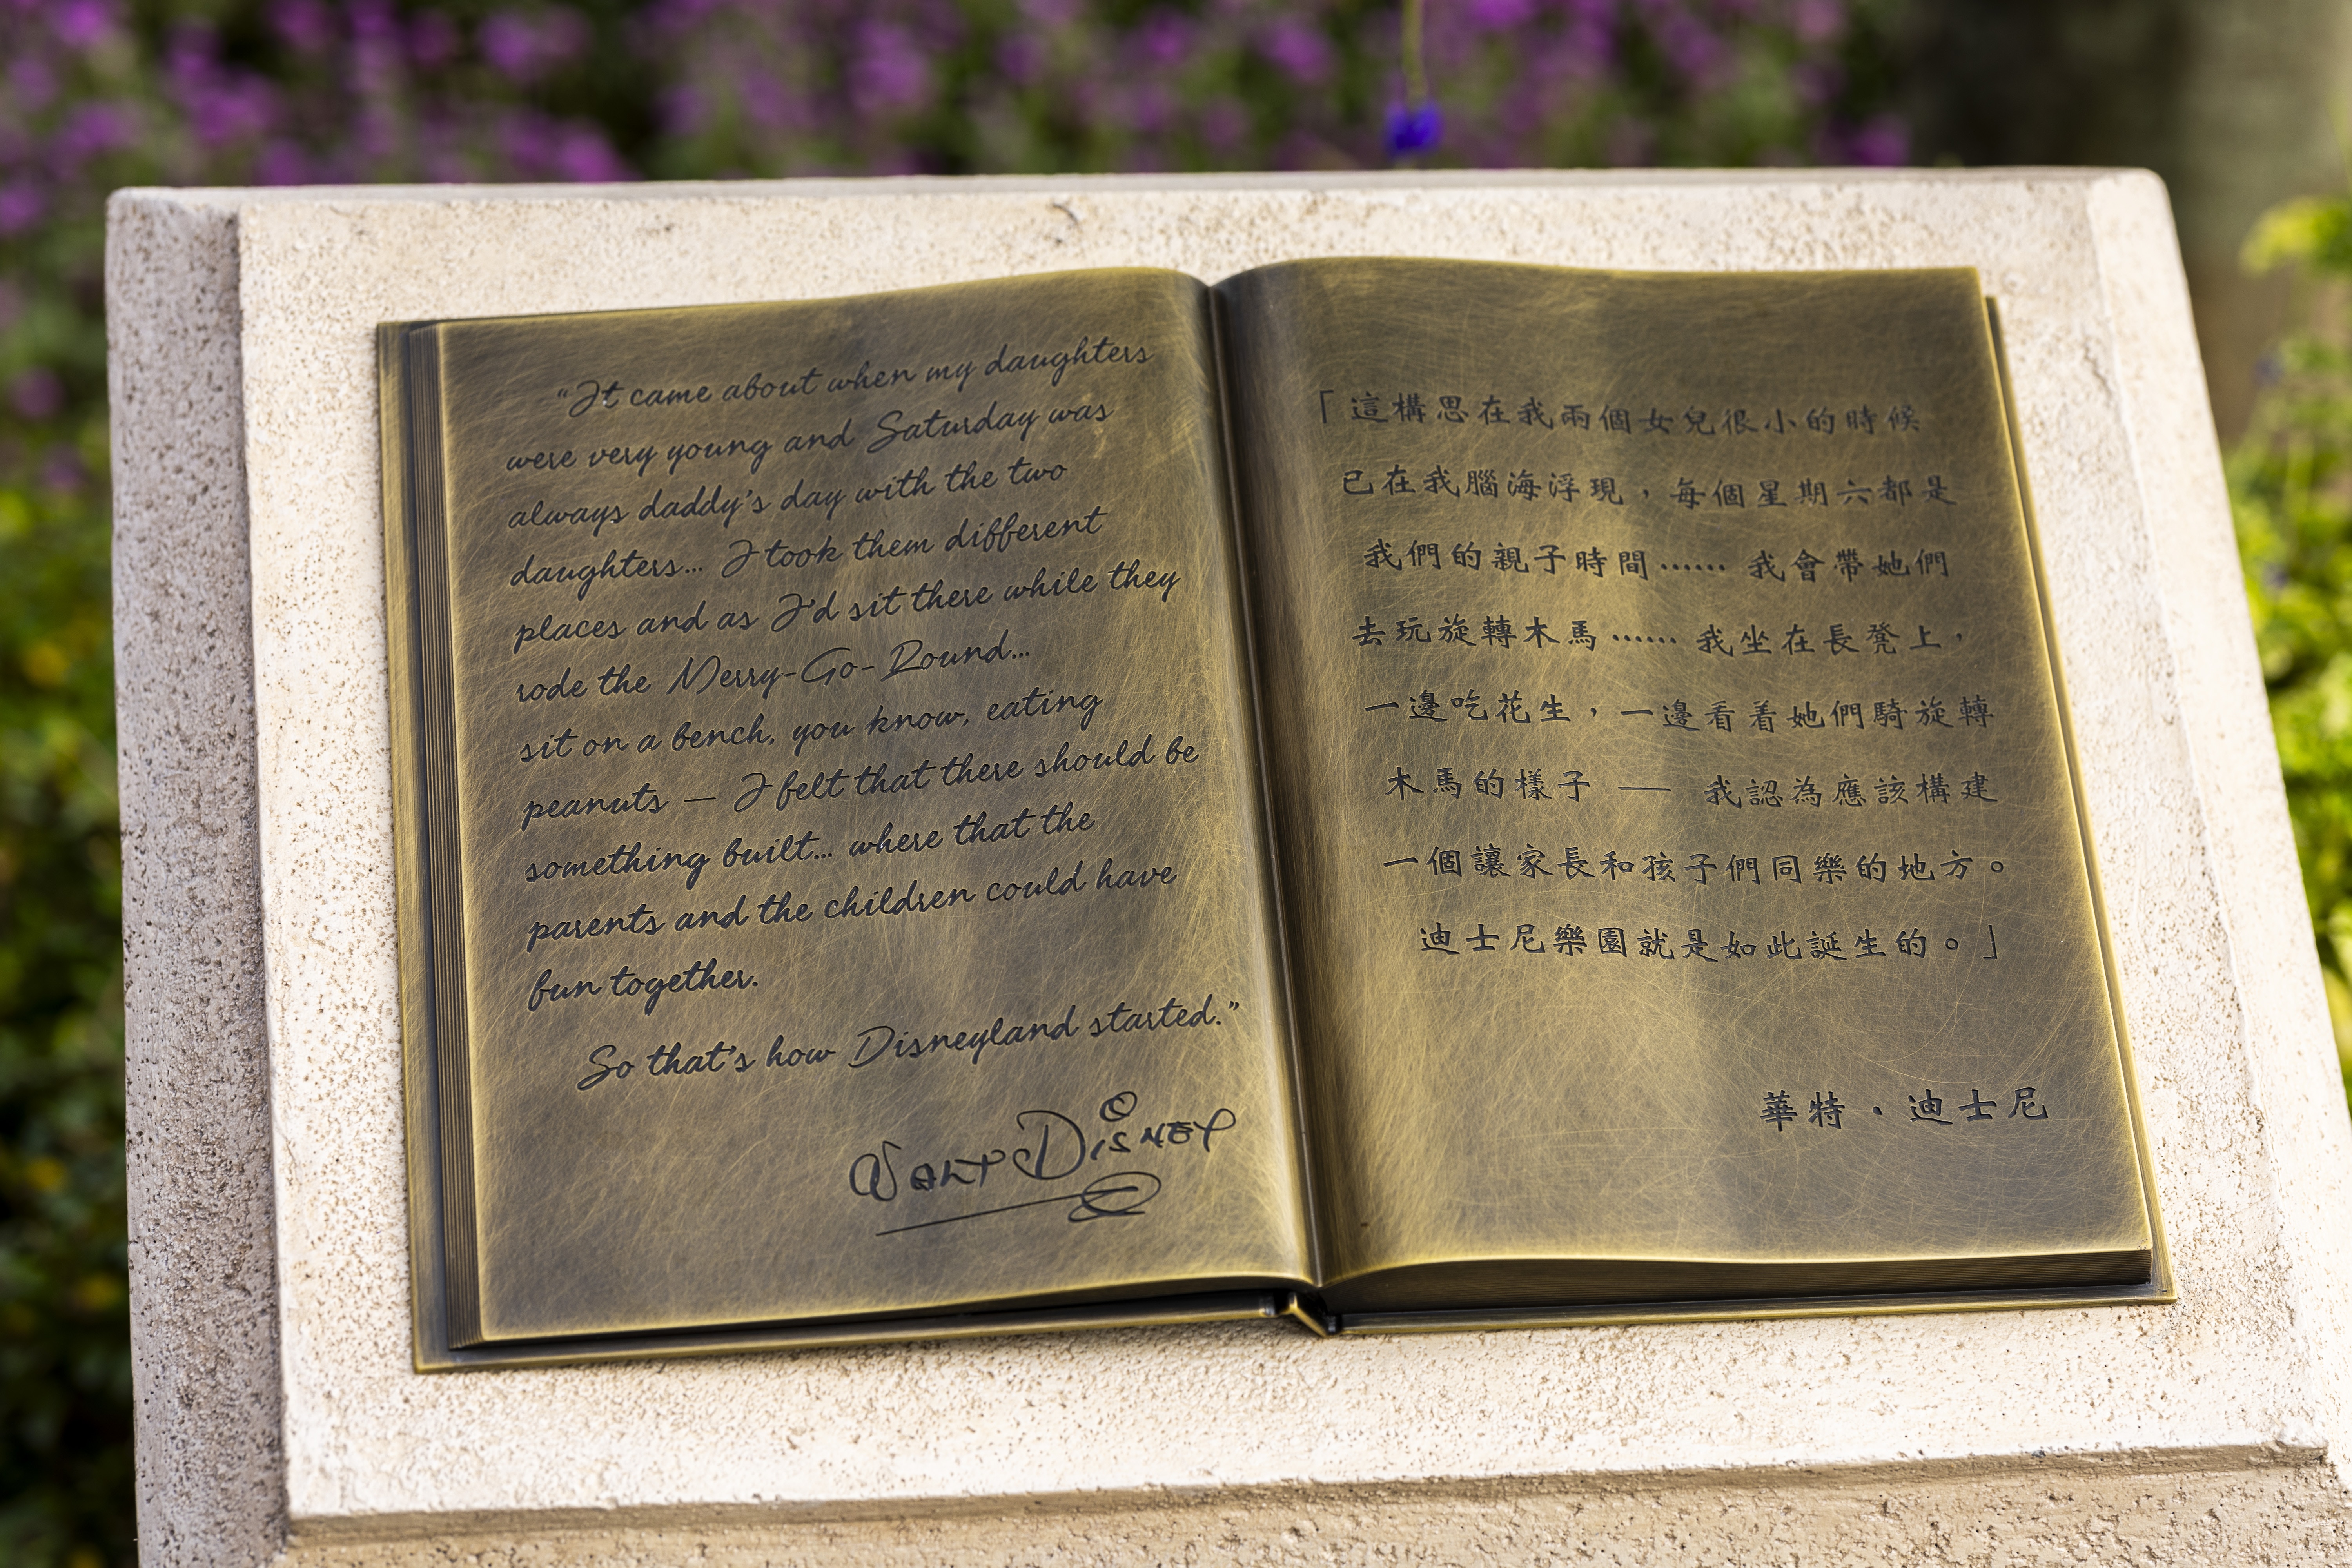 “It came about when my daughters
were very young and Saturday was
always daddy’s day with the two
daughters... I took them different
places and as I’d sit there while they
rode the Merry-Go-Round...
sit on a bench, you know, eating
peanuts — I felt that there should be
something built... where that the
parents and the children could have
fun together.
So that’s how Disneyland started.”
WALT DISNEY
「這構思在我兩個女兒很小的時候
已在我腦海浮現，每個星期六都是
我們的親子時間…… 我會帶她們
去玩旋轉木馬…… 我坐在長凳上，
一邊吃花生，一邊看着她們騎旋轉
木馬的樣子 — 我認為應該構建
一個讓家長和孩子們同樂的地方。
迪士尼樂園就是如此誕生的。」
華特・迪士尼